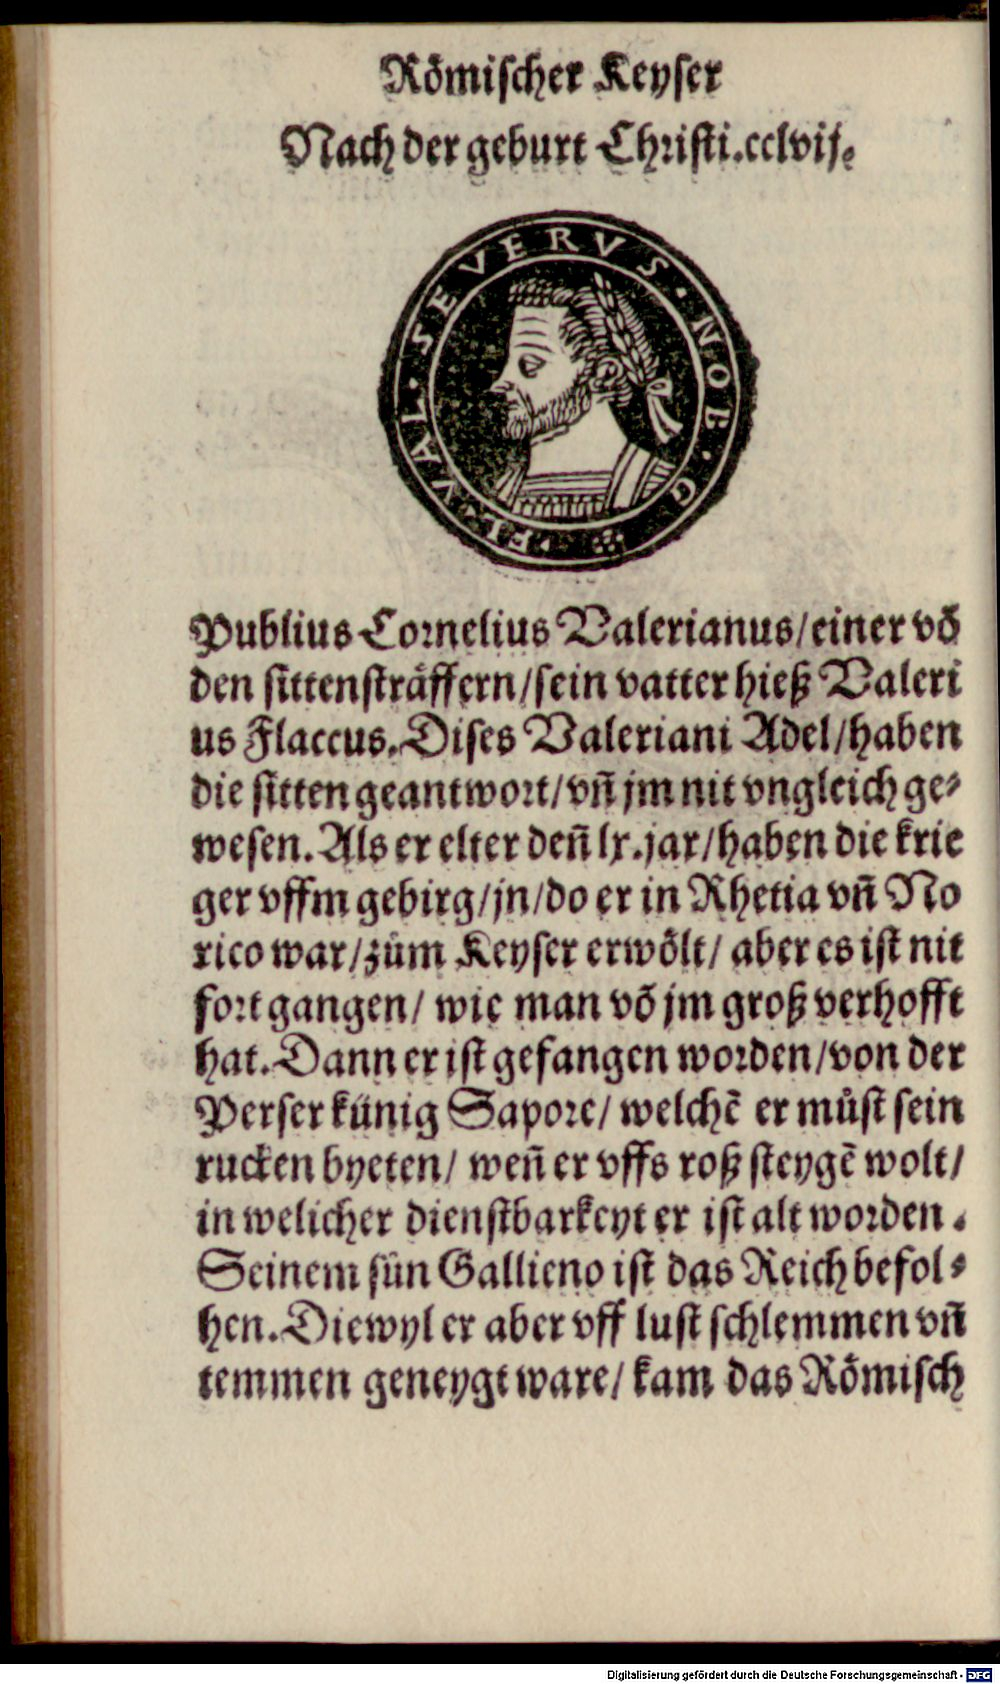 Römischer Keyser
Nach der geburt Christi.cclvij.
FL·VAL·SEVERVS·NOB·G
Publius Cornelius Valerianus/einer võ
den sittensträffern/sein vatter hieß Valeri
us Flaccus.Dises Valeriani Adel/haben
die sitten geantwort/vñ jm nit vngleich ge⸗
wesen.Als er elter deñ lx.jar/haben die krie
ger vffm gebirg/jn/do er in Rhetia vñ No
rico war/zům Keyser erwölt/ aber es ist nit
fort gangen/ wie man võ jm groß verhofft
hat.Dann er ist gefangen worden/von der
Perser künig Sapore/ welchẽ er můst sein
rucken byeten/ weñ er vffs roß steygẽ wolt/
in welicher dienstbarkeyt er ist alt worden.
Seinem sün Gallieno ist das Reich befol⸗
hen.Diewyl er aber vff lust schlemmen vñ
temmen geneygt ware/ kam das Römisch
Digitalisierung gefördert durch die Deutsche Forschungsgemeinschaft - DFG